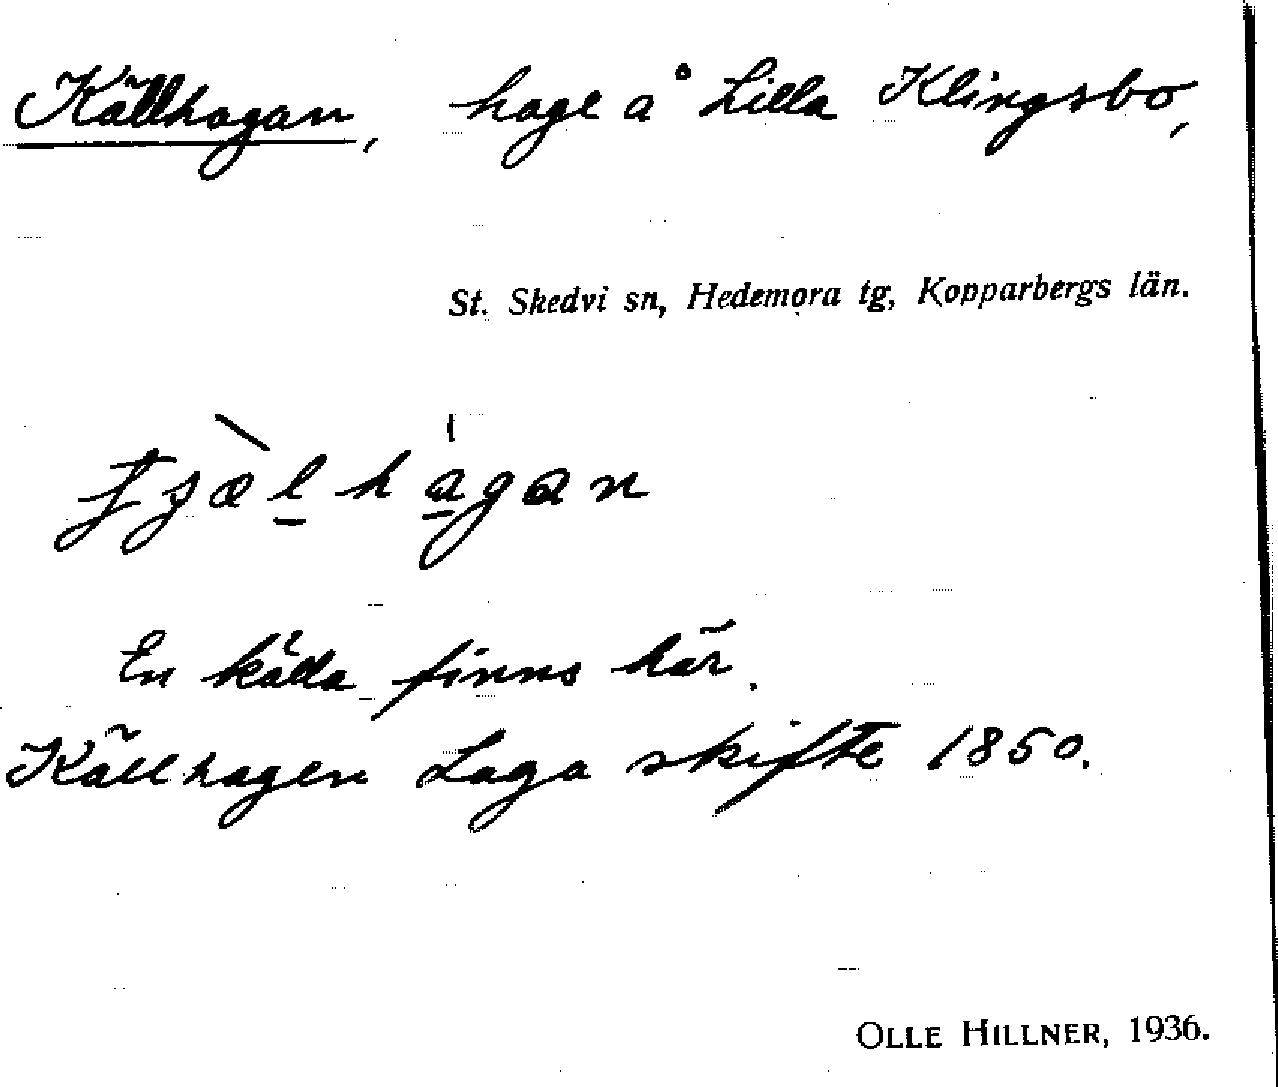 Källhagan, hage å Lilla Klingsbo,
St. Skedvi sn, Hedemora tg, Kopparbergs län.
En källa finns här.
Källhagen Laga skifte 1850.
OLLE HILLNER, 1936.